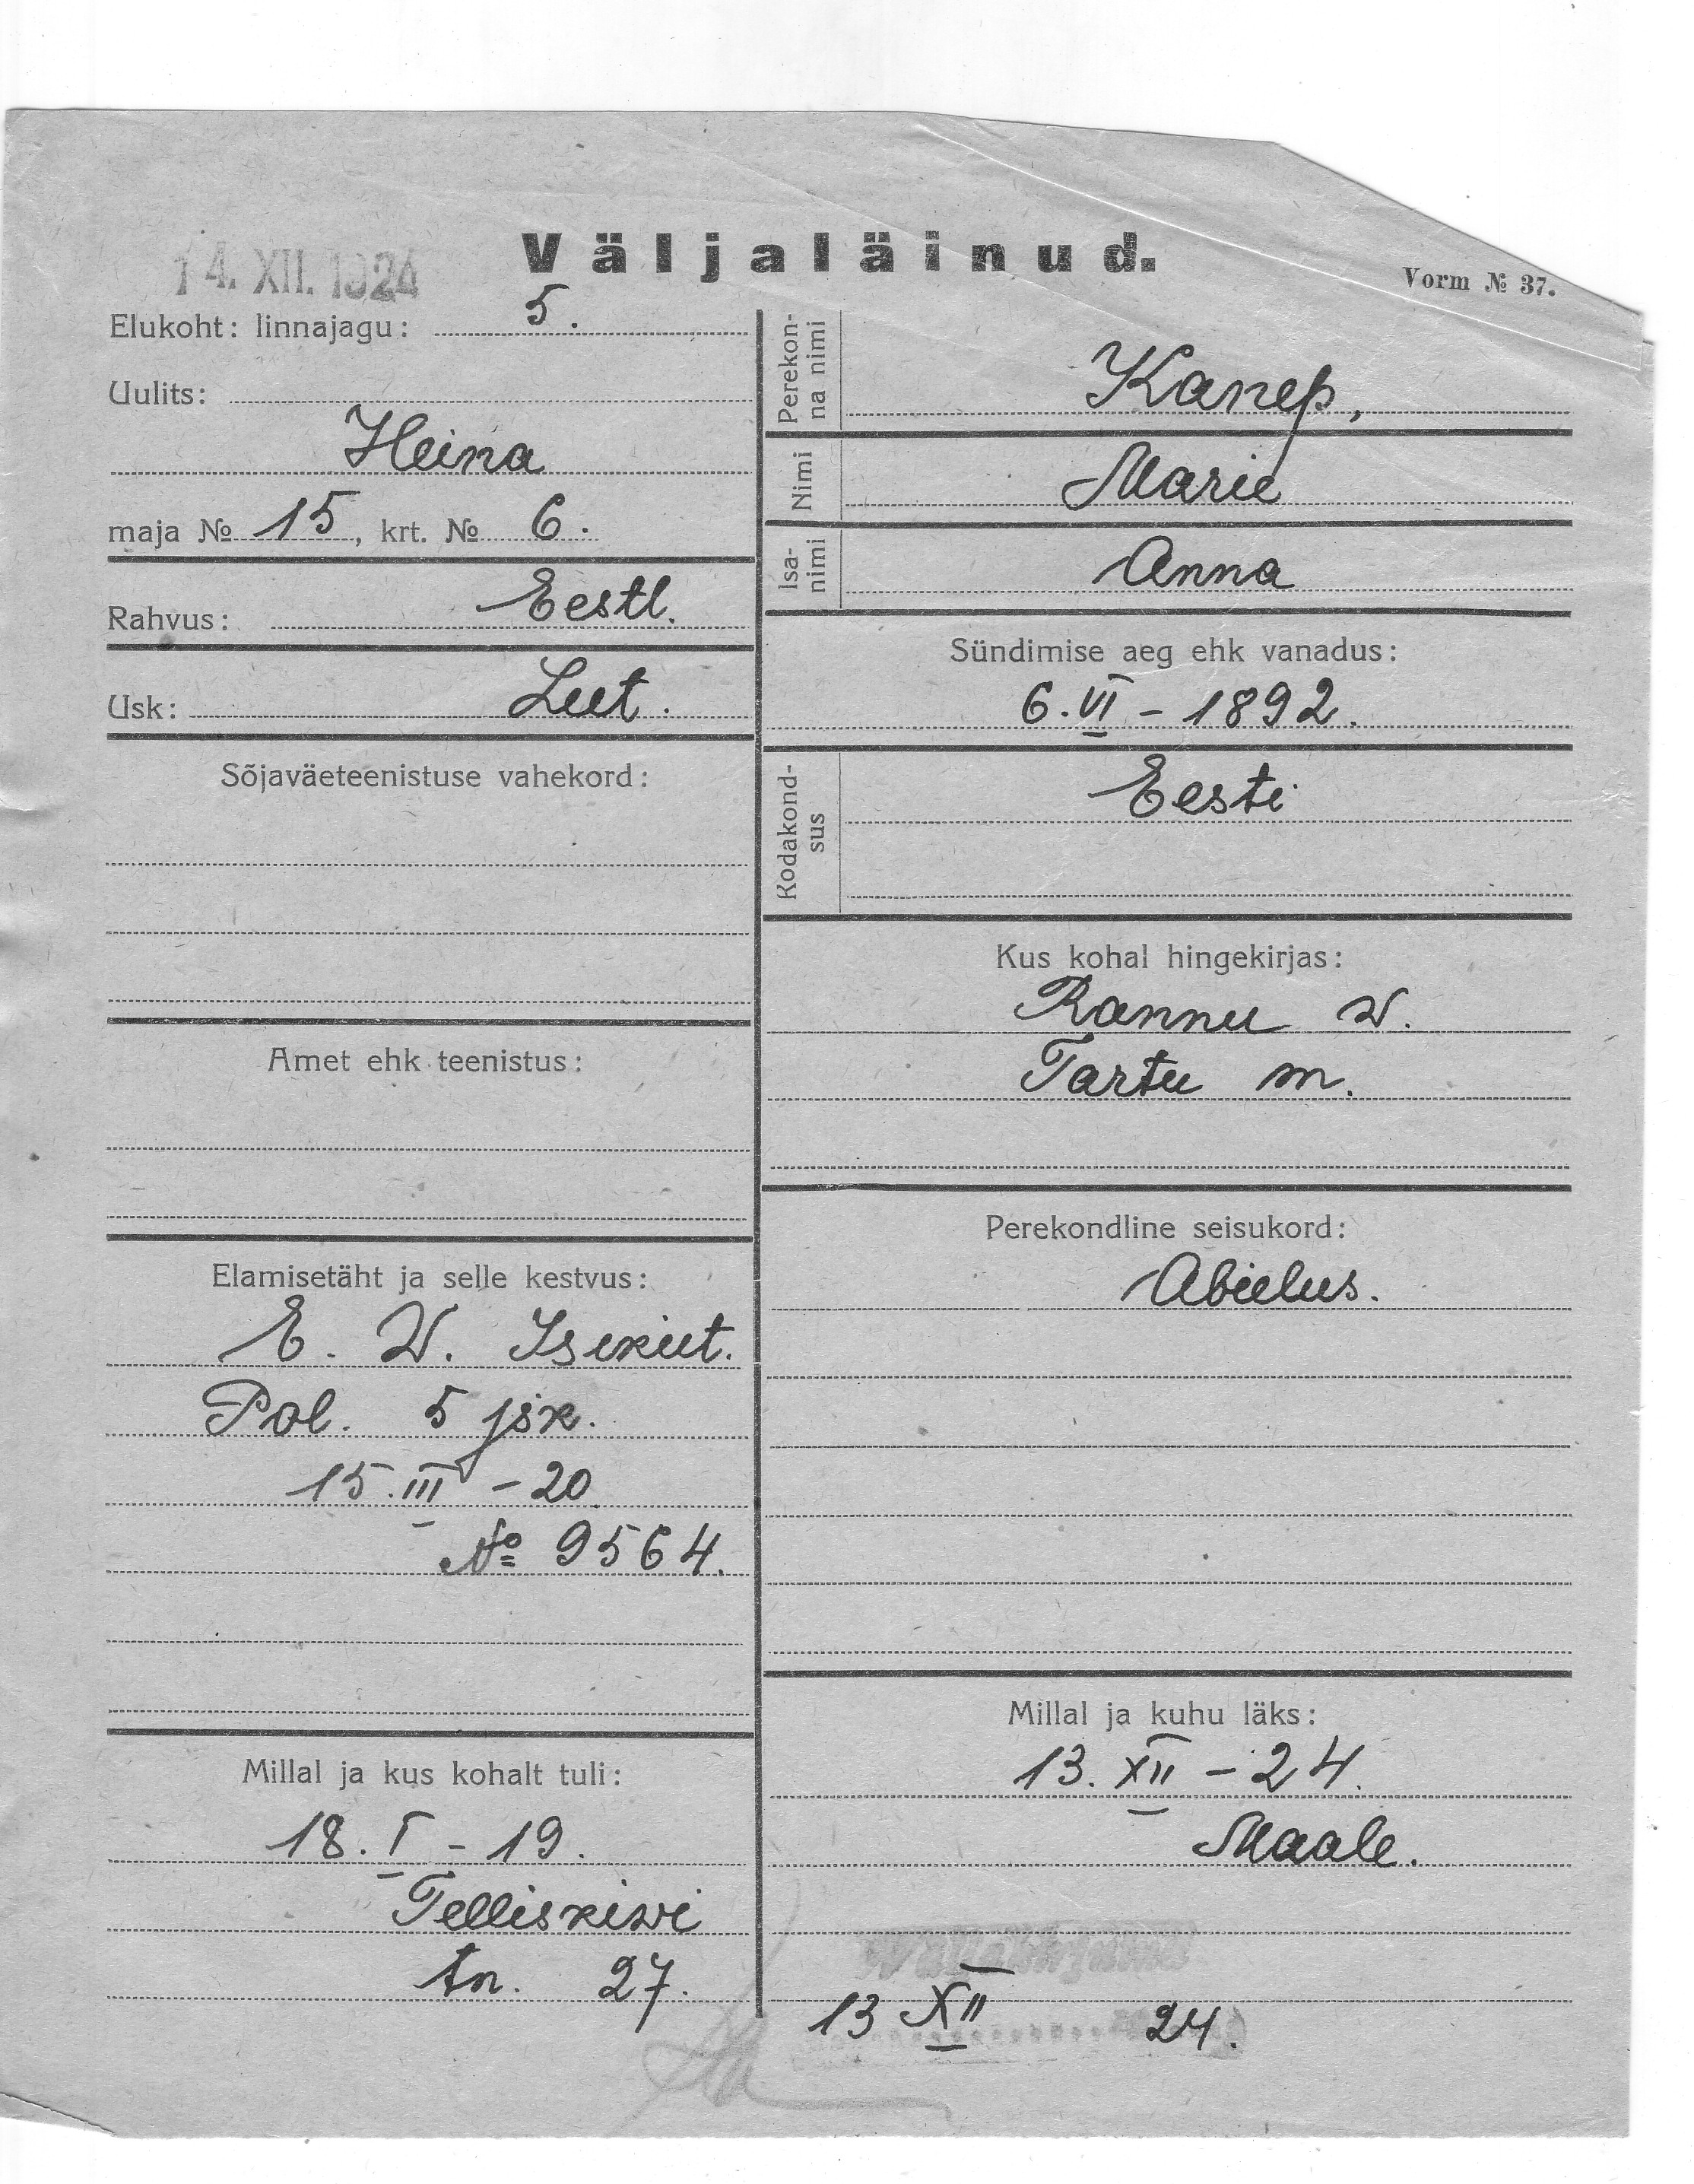 14. XII. 1924
Väljaläinud.
Vorm № 37.
Elukoht: linnajagu: 5.
Uulits:
Heina
maja № 15, krt. № 6.
Rahvus: Eestl.
Usk: Lut.
Sõjaväeteenistuse vahekord:
Amet ehk teenistus:
Elamisetäht ja selle kestvus:
E. W. Isikut.
Pol. 5 jsk.
15.III - 20
№ 9564.
Millal ja kus kohalt tuli:
18. I - 19.
Telliskiwi
tn. 27.
Perekon-
na nimi
Kanep,
Nimi
Marie
Isa-
nimi
Anna
Sündimise aeg ehk vanadus:
6. VI - 1892.
Kodakond-
sus
Eesti
Kus kohal hingekirjas:
Rannu w.
Tartu m.
Perekondline seisukord:
Abielus.
Millal ja kuhu läks:
13. XII - 24.
Maale.
13 XII 24.